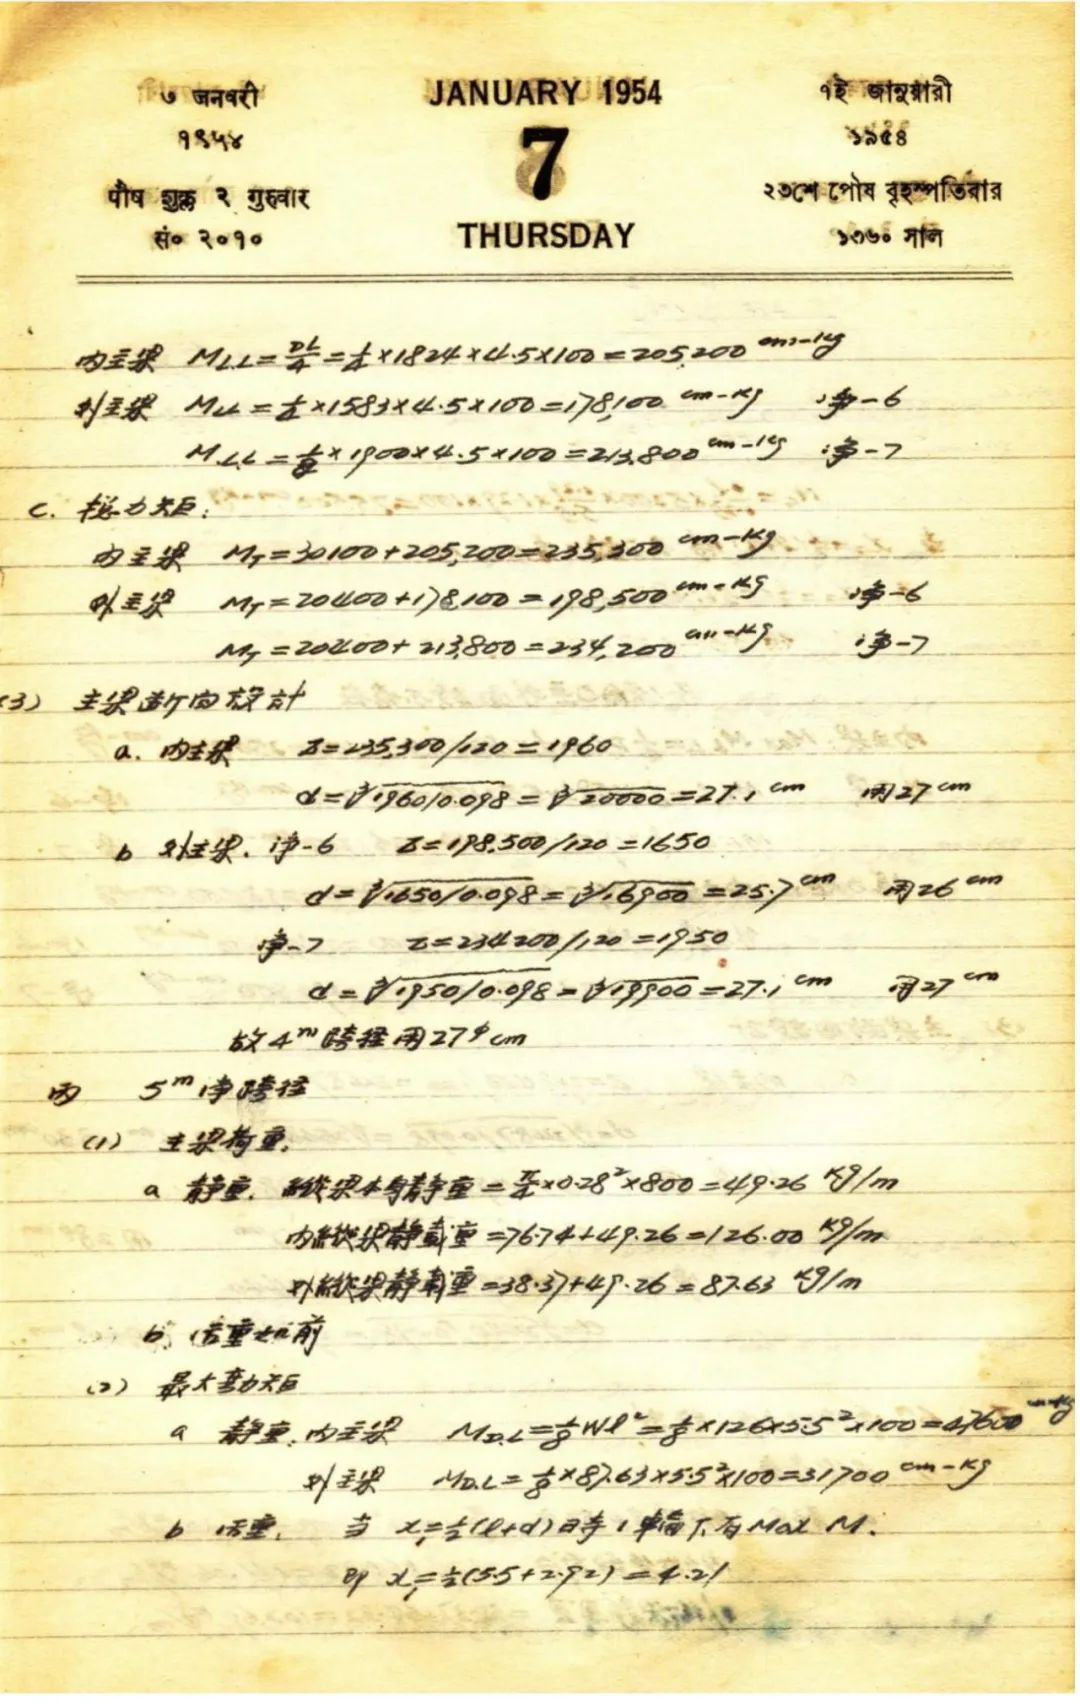 ७ जनवरी
१९५४
पौष शुक्ल २ गुरुवार
सं० २०१०
JANUARY 1954
7
THURSDAY
৭ই জানুয়ারী
১৯৫৪
২৩শে পৌষ বৃহস্পতিবার
১৩৬০ সাল
内主梁 MLL=PL/4=1/4×1824×4.5×100=205,200 cm-kg
外主梁 MLL=1/4×1583×4.5×100=178,100 cm-kg 净-6
MLL=1/4×1900×4.5×100=213,800 cm-kg 净-7
C. 總力矩:
内主梁 MT=30100+205,200=235,300 cm-kg
外主梁 MT=20400+178,100=198,500 cm-kg 净-6
MT=20400+213,800=234,200 cm-kg 净-7
(3) 主梁断面設計
a. 内主梁 Z=235,300/120=1960
d=∛1960/0.098=∛20000=27.1 cm 用27 cm
b 外主梁. 净-6 Z=198,500/120=1650
d=∛1650/0.098=∛16900=25.7 cm 用26 cm
净-7 Z=234200/120=1950
d=∛1950/0.098=∛19900=27.1 cm 用27 cm
故4m跨径用27φcm
丙 5m净跨径
(1) 主梁荷重.
a 静重. 縱梁本身静重=π/4×0.28²×800=49.26 kg/m
内縱梁静載重=76.74+49.26=126.00 kg/m
外縱梁静載重=38.37+49.26=87.63 kg/m
b. 活重如前
(2) 最大弯力矩
a 静重. 内主梁 MD.L=1/8Wl²=1/8×126×5.5²×100=47600 cm-kg
外主梁 MD.L=1/8×87.63×5.5²×100=31700 cm-kg
b 活重. 当 x₁=1/2(l+d)时 1轮下有Max M.
即 x₁=1/2(5.5+2.92)=4.21